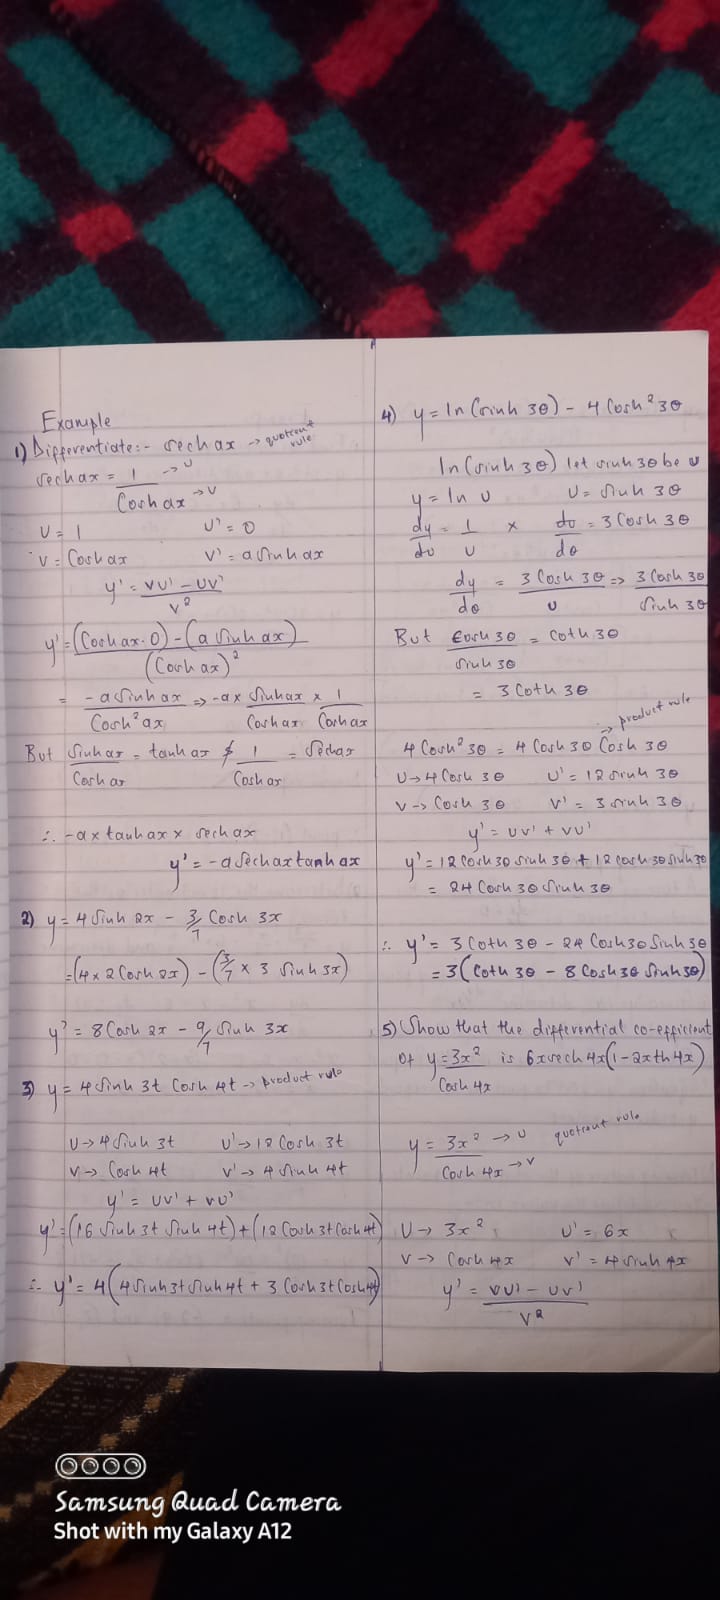 Example
1) Differentiate:- sech ax → quotient rule
sech ax = 1 → U
Cosh ax → V
U = 1 U' = 0
V = Cosh ax V' = a Sinh ax
y' = VU' - UV'
V²
y' = (Cosh ax · 0) - (a Sinh ax)
(Cosh ax)²
= - a Sinh ax => -a x Sinh ax x 1
Cosh² ax Cosh ax Cosh ax
But Sinh ax = tanh ax & 1 = Sech ax
Cosh ax Cosh ax
∴ -a x tanh ax x sech ax
y' = -a Sech ax tanh ax
2) y = 4 Sinh 2x - 3/7 Cosh 3x
= (4 x 2 Cosh 2x) - (3/7 x 3 Sinh 3x)
y' = 8 Cosh 2x - 9/7 Sinh 3x
3) y = 4 Sinh 3t Cosh 4t → product rule
U → 4 Sinh 3t U' → 12 Cosh 3t
V → Cosh 4t V' → 4 Sinh 4t
y' = UV' + VU'
y' = (16 Sinh 3t Sinh 4t) + (12 Cosh 3t Cosh 4t)
∴ y' = 4(4 Sinh 3t Sinh 4t + 3 Cosh 3t Cosh 4t)
4) y = ln (sinh 3θ) - 4 Cosh² 3θ
ln (sinh 3θ) let sinh 3θ be U
y = ln U U = Sinh 3θ
dy = 1 x du = 3 Cosh 3θ
du U dθ
dy = 3 Cosh 3θ => 3 Cosh 3θ
dθ U Sinh 3θ
But Cosh 3θ = Coth 3θ
Sinh 3θ
= 3 Coth 3θ
→ product rule
4 Cosh² 3θ = 4 Cosh 3θ Cosh 3θ
U → 4 Cosh 3θ U' = 12 sinh 3θ
V → Cosh 3θ V' = 3 sinh 3θ
y' = UV' + VU'
y' = 12 Cosh 3θ Sinh 3θ + 12 Cosh 3θ Sinh 3θ
= 24 Cosh 3θ Sinh 3θ
∴ y' = 3 Coth 3θ - 24 Cosh 3θ Sinh 3θ
= 3(Coth 3θ - 8 Cosh 3θ Sinh 3θ)
5) Show that the differential co-efficient
Of y = 3x² is 6x sech 4x(1 - 2x th 4x)
Cosh 4x
y = 3x² → U quotient rule
Cosh 4x → V
U → 3x² U' = 6x
V → Cosh 4x V' = 4 sinh 4x
y' = VU' - UV'
V²
Samsung Quad Camera
Shot with my Galaxy A12